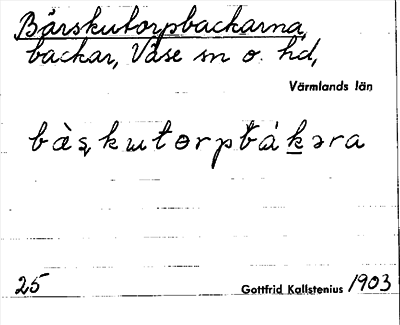 Bärskutorpbackarna,
backar, Väse sn o. hd,
Värmlands län
bà̀ʂkɯtɵrpbákəra
25 Gottfrid Kallstenius 1903